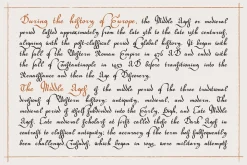 During the history of Europe, the Middle Ages or medieval
period lasted approximately from the late 5th to the late 15th centuries,
aligning with the post-classical period of global history. It began with
the fall of the Western Roman Empire in 476 A.D and ended with
the fall of Constantinople in 1453 A.D before transitioning into the
Renaissance and then the Age of Discovery.
The Middle Ages is the middle period of the three traditional
divisions of Western history: antiquity, medieval, and modern. The
medieval period is itself subdivided into the Early, High, and Late Middle
Ages. Late medieval scholars at first called these the Dark Ages in
contrast to classical antiquity; the accuracy of the term has subsequently
been challenged.